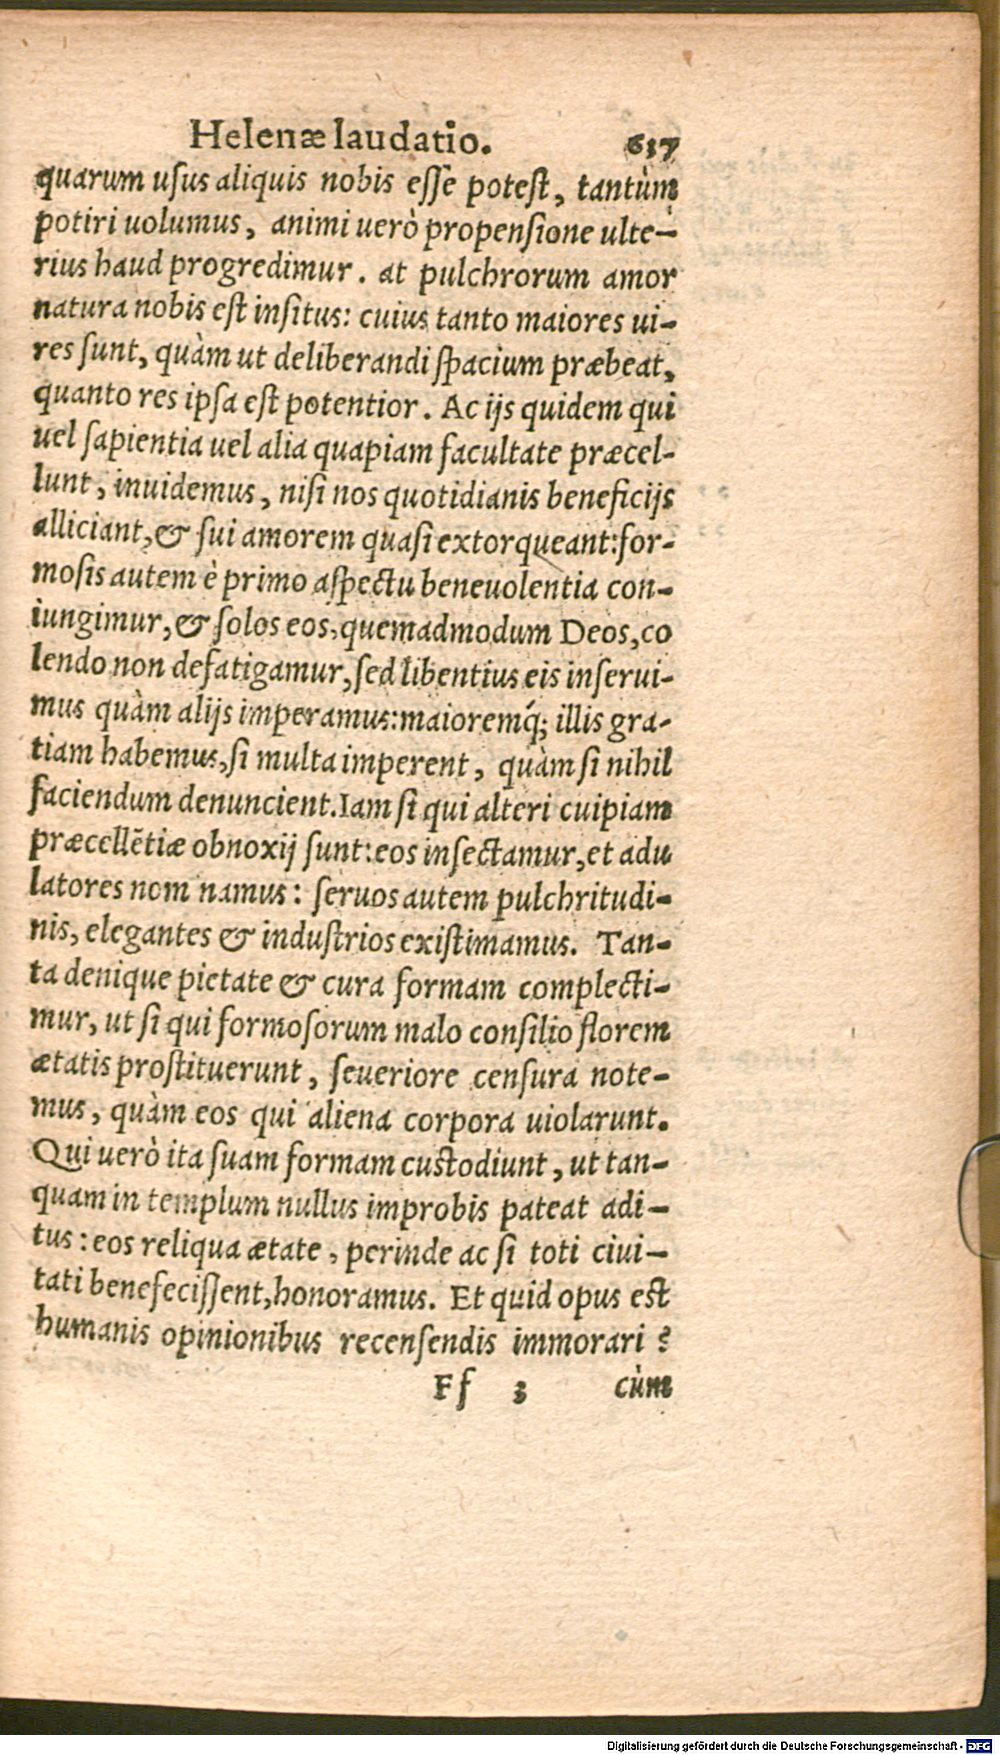 Helenæ laudatio. 637
quarum usus aliquis nobis esse potest, tantùm
potiri uolumus, animi uerò propensione ulte-
rius haud progredimur. at pulchrorum amor
natura nobis est insitus: cuius tanto maiores ui-
res sunt, quàm ut deliberandi spacium præbeat,
quanto res ipsa est potentior. Ac ijs quidem qui
uel sapientia uel alia quapiam facultate præcel-
lunt, inuidemus, nisi nos quotidianis beneficijs
alliciant, & sui amorem quasi extorqueant: for-
mosis autem è primo aspectu beneuolentia con-
iungimur, & solos eos, quemadmodum Deos, co
lendo non defatigamur, sed libentius eis inserui-
mus quàm alijs imperamus: maioremq́; illis gra-
tiam habemus, si multa imperent, quàm si nihil
faciendum denuncient. Iam si qui alteri cuipiam
præcellẽtiæ obnoxij sunt: eos insectamur, et adu
latores nom namus: seruos autem pulchritudi-
nis, elegantes & industrios existimamus. Tan-
ta denique pietate & cura formam complecti-
mur, ut si qui formosorum malo consilio florem
ætatis prostituerunt, seueriore censura note-
mus, quàm eos qui aliena corpora uiolarunt.
Qui uerò ita suam formam custodiunt, ut tan-
quam in templum nullus improbis pateat adi-
tus: eos reliqua ætate, perinde ac si toti ciui-
tati benefecissent, honoramus. Et quid opus est
humanis opinionibus recensendis immorari?
Ff 3 cùm
Digitalisierung gefördert durch die Deutsche Forschungsgemeinschaft - DFG